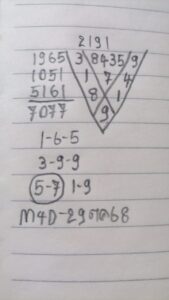 2191
1965 3 8435 9
1051 1 7 4
5161 8 1
7077 9
1-6-5
3-9-9
5-7 1-9
M4D-29ตค68